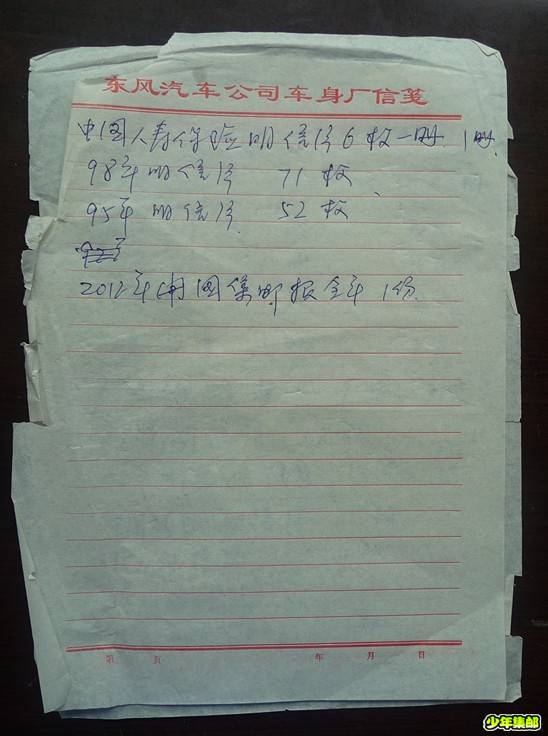 东风汽车公司车身厂信笺
中国人寿保险明信片6枚一册 1册
98年明信片 71枚
95年明信片 52枚
2012年中国集邮报全年1份
第 页 年 月 日
少年集邮